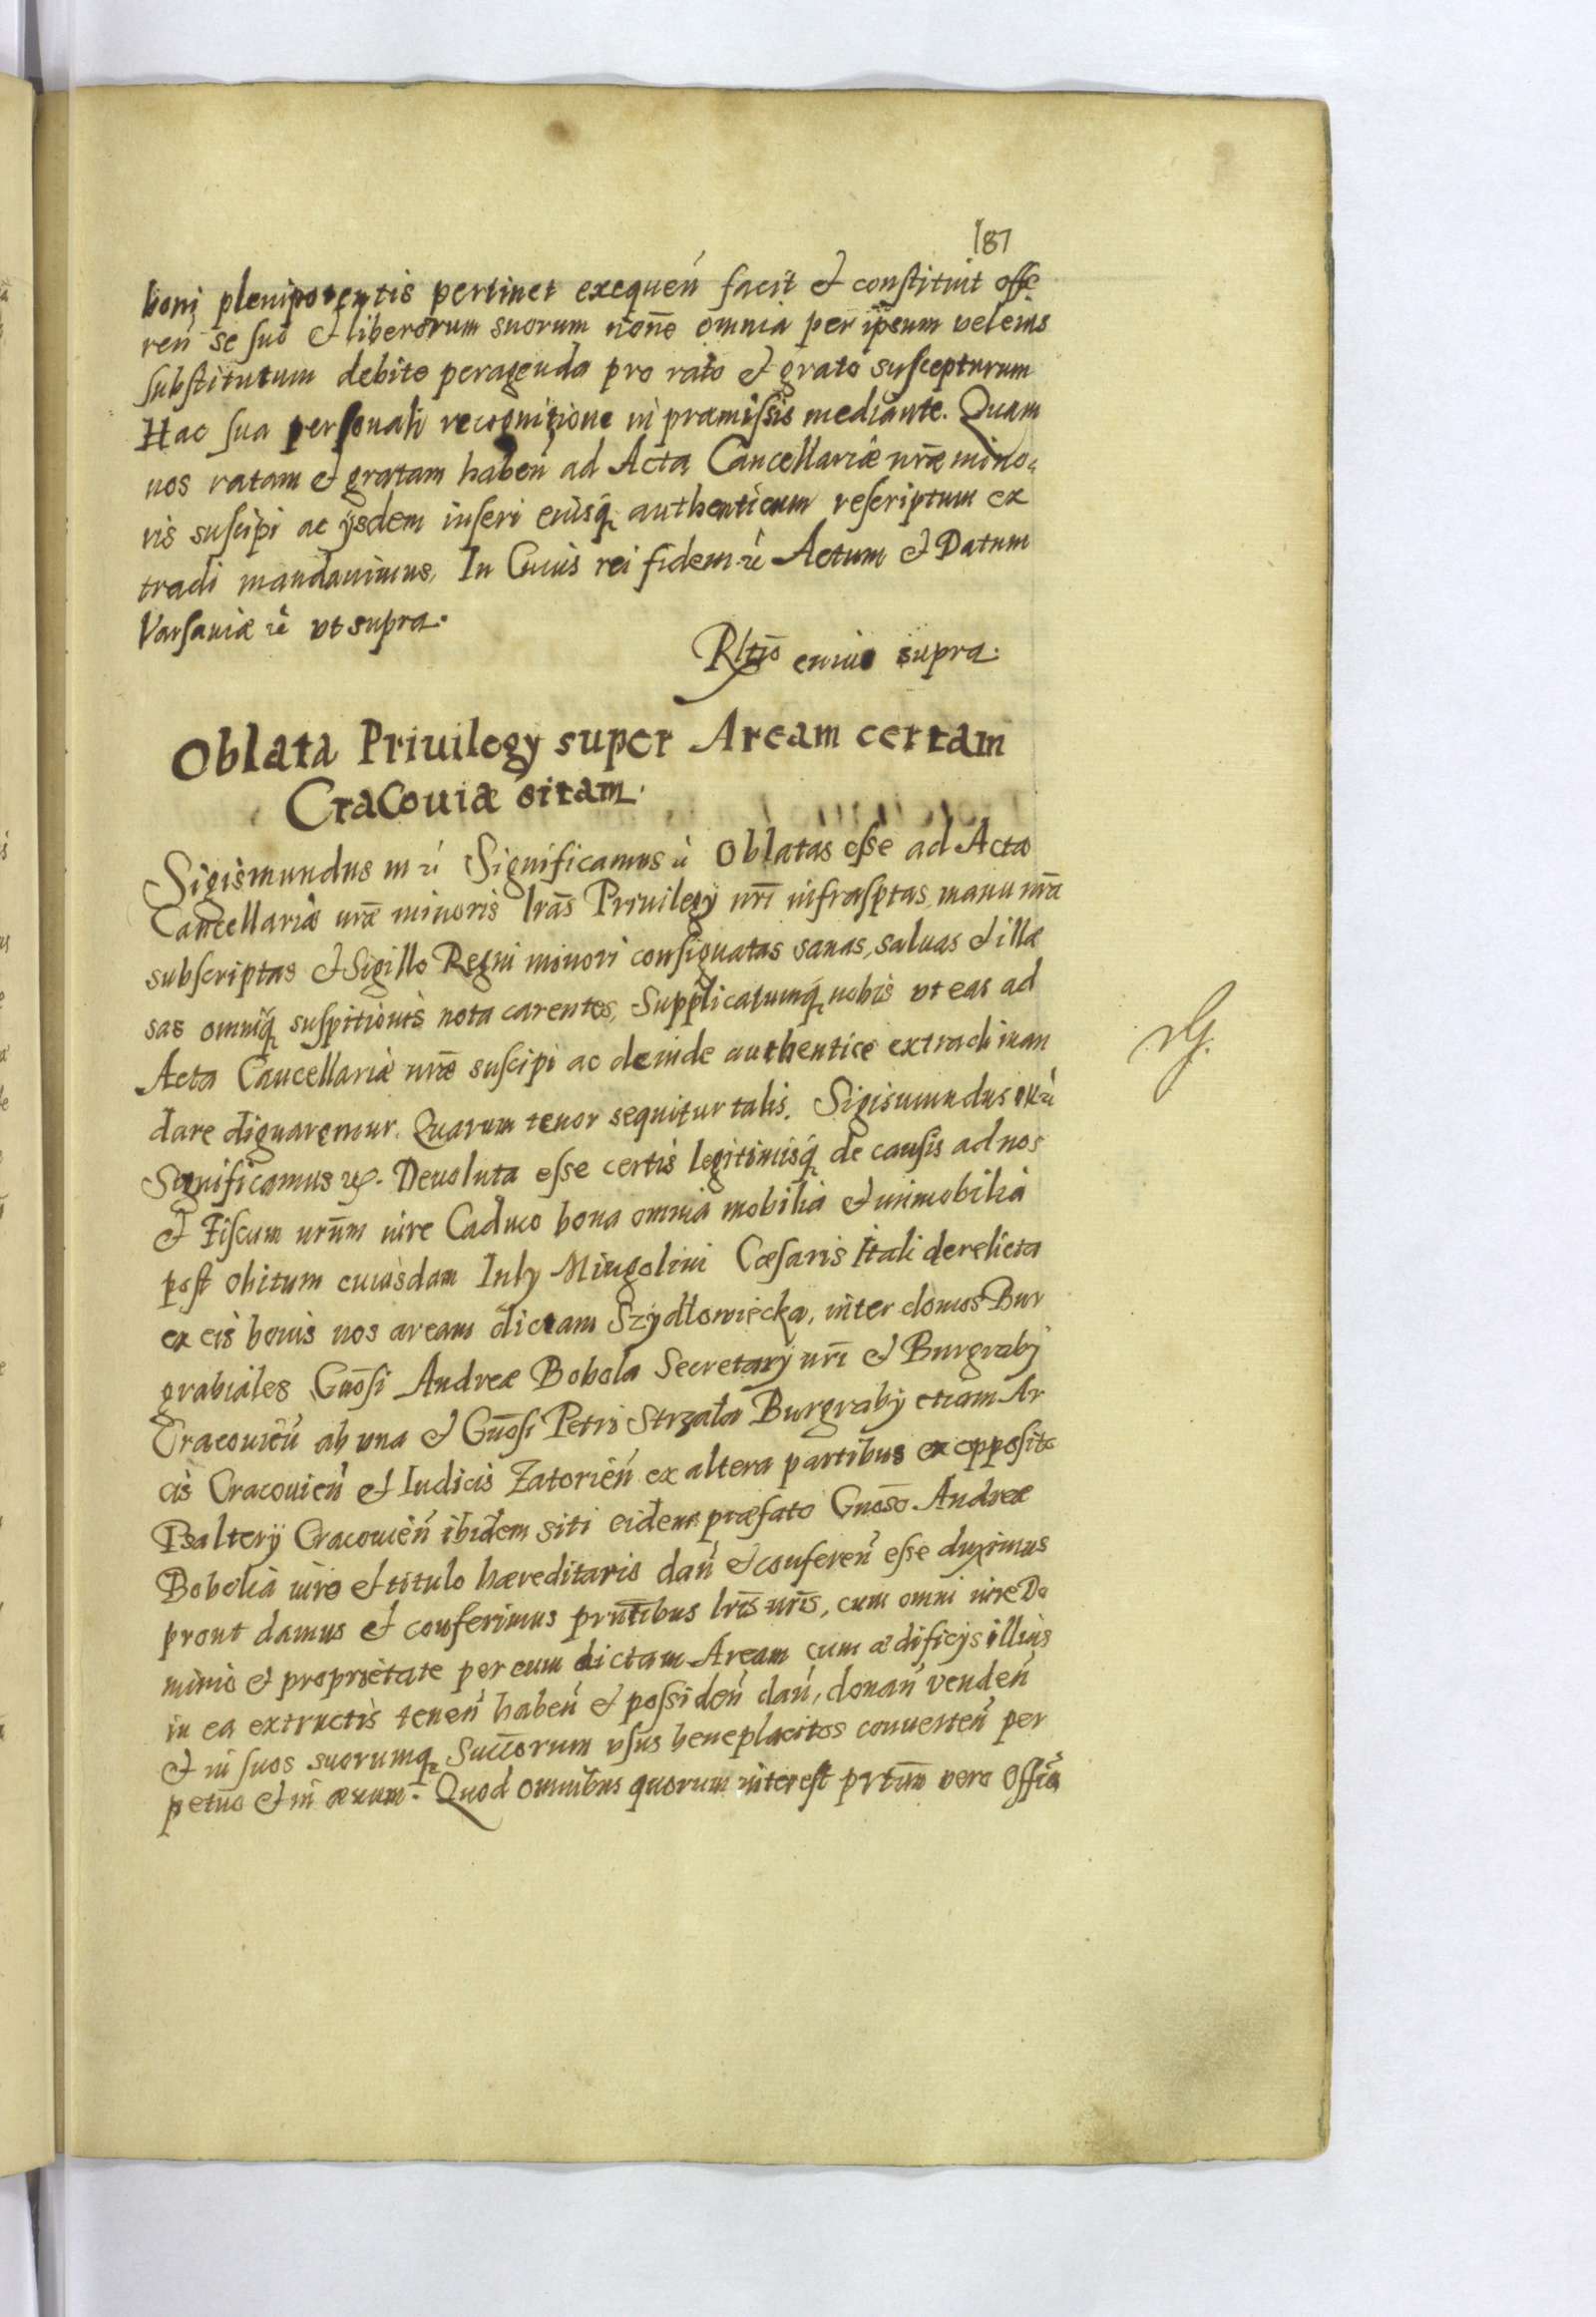 187
boni plenipotentis pertinet exequeń facit et constituit offe
reń se suo et liberorum suorum noīne omnia per ipsum vel eius
substitutum debite peragenda pro rato et grato suscepturum
Hac sua personali recognitione in præmissis mediante. Quam
nos ratam et gratam habeń ad Acta Cancellariæ nrǣ mino
ris suscipi ac ijsdem inseri eiusq́ authenticum rescriptum ex
tradi mandavimus, In Cuius rei fidem etc Actum et Datum
Varsaviæ etc ut supra.
Rltio eius supra.
Oblata Priuilegy super Aream certam
Cracouiæ sitam.
Sigismundus III etc Significamus etc Oblatas esse ad Acta
Cancellariæ nrǣ minoris lrās Priuilegy nrī infrasptas manu nrā
subscriptas et Sigillo Regni minori consignatas sanas, saluas et illæ
sas omniq́ suspitionis nota carentes, Supplicatumq́ nobis ut eas ad
Acta Cancellariæ nrǣ suscipi ac deinde authentice extradi man
dare dignaremur. Quarum tenor sequitur talis. Sigismundus III etc
Significamus etc. Deuoluta esse certis legitimisq́ de causis ad nos
et Fiscum nrūm iure Caduco bona omnia mobilia et immobilia
post obitum cuiusdam Iuly Mingolini Cæsaris Itali derelicta
ex eis bonis nos aream dictam Szydłowiecka, inter domos Bur
grabiales Gnōsi Andreæ Bobola Secretarÿ nrī et Burgrabÿ
Cracouień ab una et Gnōsi Petri Strzała Burgrabÿ etiam Ar
cis Cracouień et Iudicis Zatorień ex altera partibus ex opposito
Psalterÿ Cracouień ibidem siti eidem præfato Gnoso Andreæ
Bobola iure et titulo hæreditario dań et confereń esse duximus
prout damus et conferimus prntībus lrīs nrīs, cum omni iure Do
minio et proprietate per eum dictam Aream cum ædificijs illius
in ea extructis teneń habeń et possideń dań, donań vendeń
et in suos suorumq́ Succorum usus beneplacitos conuerteń per
petuo et in æuum. Quod omnibus quorum interest prtim vero Offiās